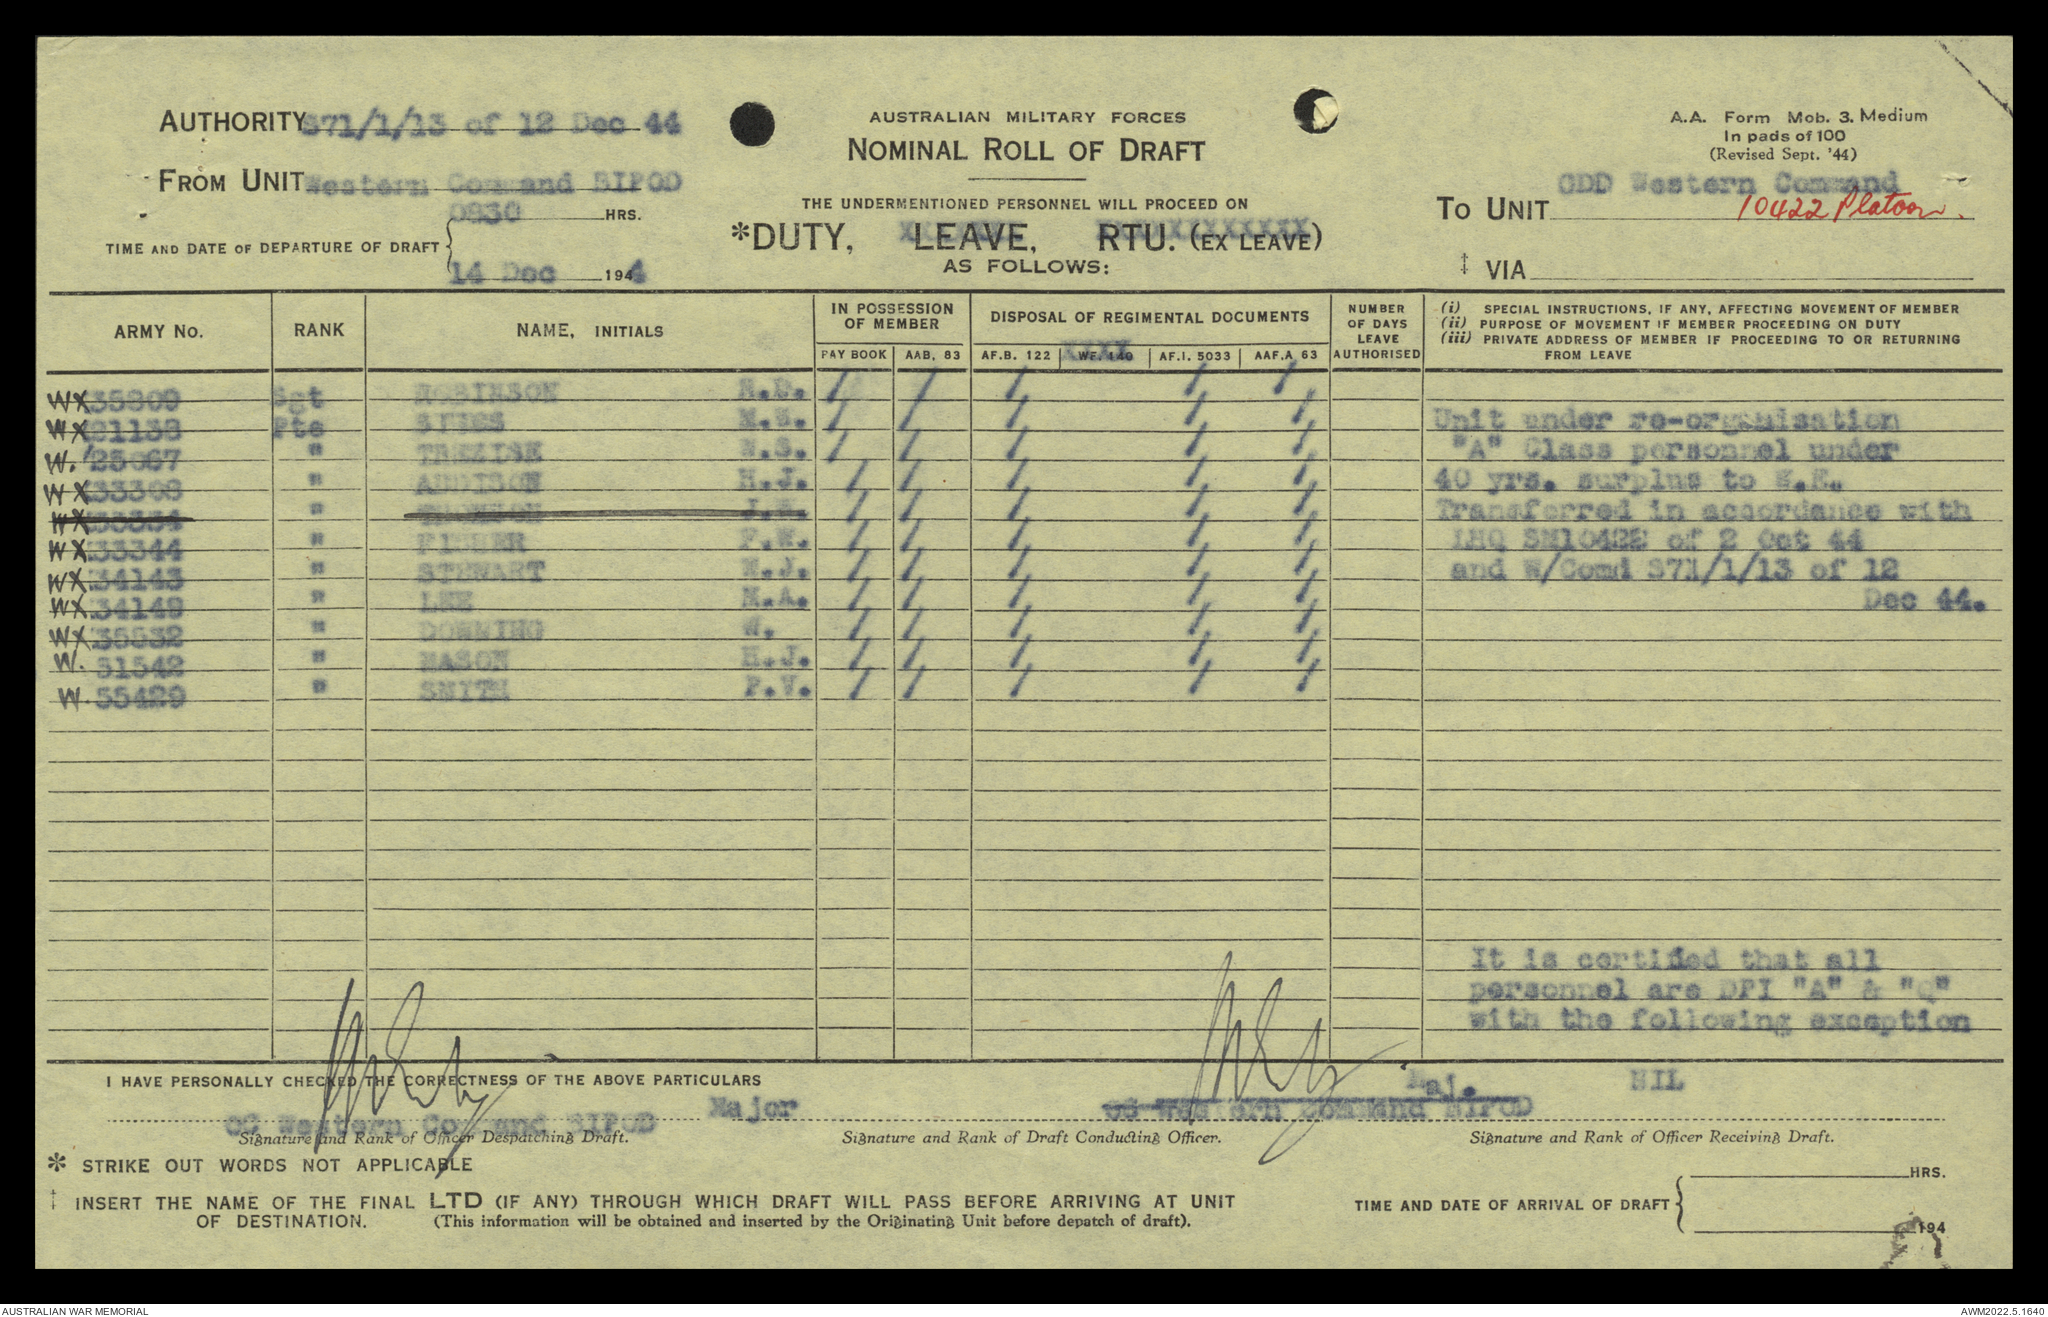 AUTHORITY S71/1/13 of 12 Dec 44
AUSTRALIAN MILITARY FORCES
A.A. Form Mob. 3. Medium
In pads of 100
(Revised Sept. '44)
NOMINAL ROLL OF DRAFT
FROM UNIT Western Command BIPOD
THE UNDERMENTIONED PERSONNEL WILL PROCEED ON
TO UNIT GDD Western Command
10422 Platoon.
TIME AND DATE OF DEPARTURE OF DRAFT 0830 HRS.
14 Dec 1944
*DUTY, LEAVE, RTU. (EX LEAVE)
AS FOLLOWS:
‡ VIA
ARMY No. RANK NAME, INITIALS IN POSSESSION OF MEMBER DISPOSAL OF REGIMENTAL DOCUMENTS NUMBER OF DAYS LEAVE AUTHORISED
PAY BOOK AAB, 83 AF.B. 122 WF. 140 AF.I. 5033 AAF.A 63
(i) SPECIAL INSTRUCTIONS, IF ANY, AFFECTING MOVEMENT OF MEMBER
(ii) PURPOSE OF MOVEMENT IF MEMBER PROCEEDING ON DUTY
(iii) PRIVATE ADDRESS OF MEMBER IF PROCEEDING TO OR RETURNING
FROM LEAVE
WX35809 Sgt ROBINSON / / / / /
WX21138 Pte / / / / /
W. 25067 " TREZISE W.S. / / / / /
WX33308 " ADDISON H.J. / / / / /
WX33334 " / / / / /
WX33344 " FISHER F.W. / / / / /
WX34143 " STEWART / / / / /
WX34149 " LEE M.A. / / / / /
WX35532 " DOWNING W. / / / / /
W. 51542 " MASON H.J. / / / / /
W. 55429 " SMITH F.V. / / / / /
Unit under re-organisation
"A" Class personnel under
40 yrs. surplus to W.E.
Transferred in accordance with
LHQ SM10422 of 2 Oct 44
and W/Comd S71/1/13 of 12
Dec 44.
It is certified that all
personnel are DPI "A" & "Q"
with the following exception
NIL
I HAVE PERSONALLY CHECKED THE CORRECTNESS OF THE ABOVE PARTICULARS
Major
OC Western Command BIPOD
Maj.
OC Western Command BIPOD
Signature and Rank of Officer Despatching Draft.
Signature and Rank of Draft Conducting Officer.
Signature and Rank of Officer Receiving Draft.
* STRIKE OUT WORDS NOT APPLICABLE
‡ INSERT THE NAME OF THE FINAL LTD (IF ANY) THROUGH WHICH DRAFT WILL PASS BEFORE ARRIVING AT UNIT
OF DESTINATION. (This information will be obtained and inserted by the Originating Unit before depatch of draft).
TIME AND DATE OF ARRIVAL OF DRAFT HRS.
194
AUSTRALIAN WAR MEMORIAL
AWM2022.5.1640